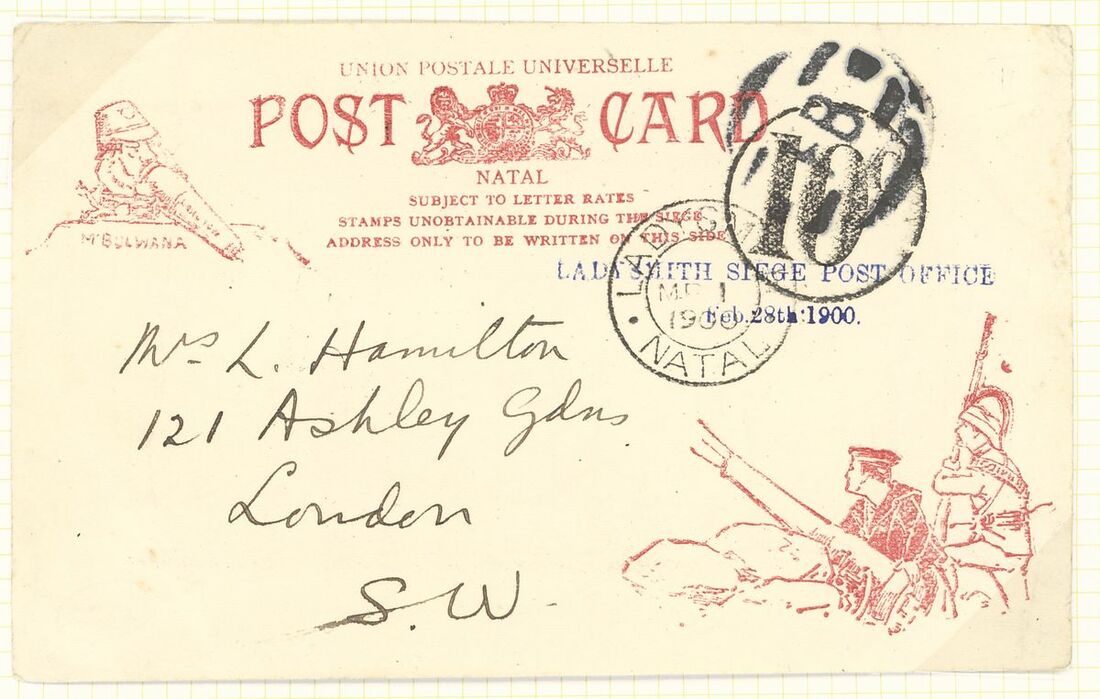 UNION POSTALE UNIVERSELLE
POST CARD
NATAL
SUBJECT TO LETTER RATES
STAMPS UNOBTAINABLE DURING THE SIEGE
ADDRESS ONLY TO BE WRITTEN ON THIS SIDE
M'BULWANA
B
109
LADYSMITH SIEGE POST OFFICE
Feb. 28th: 1900.
LADYSMITH
MR 1
1900
NATAL
Mrs L. Hamilton
121 Ashley Gdns
London
S.W.